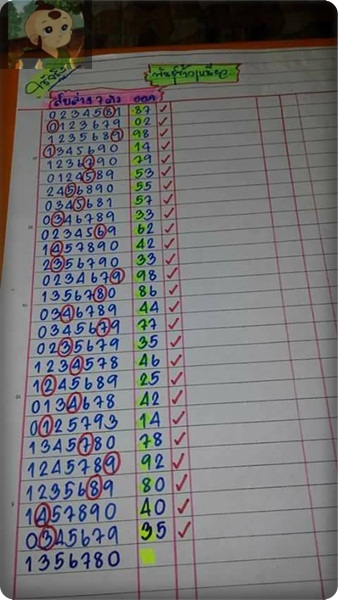 สิบล่าง 7 ตัว ออก
0234581 87
0123679 02
1235689 98
1345690 14
1236790 79
0124589 53
2456890 55
0345681 57
0346789 33
0234569 62
1457890 42
2356790 33
0234679 98
1356780 86
0346789 44
0345679 77
0235679 35
1234578 46
1245689 25
0134678 42
0125793 14
1345780 78
1245789 92
1235689 80
1457890 40
0345679 35
1356780